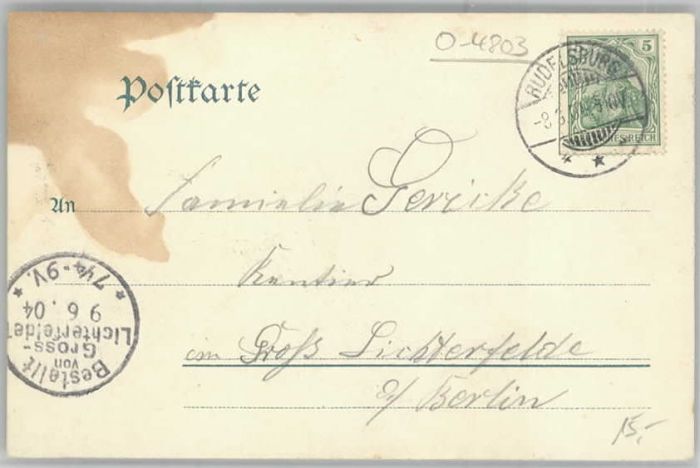 O-4803
Postkarte
5
RUDELSBURG
-8.
ES REICH
An Familie Gericke
Rentier
in Groß Lichterfelde
a/ Berlin
Bestellt
von
Gross-
Lichterfelde
9 6. 04
* 7¼-9V. *
15,-